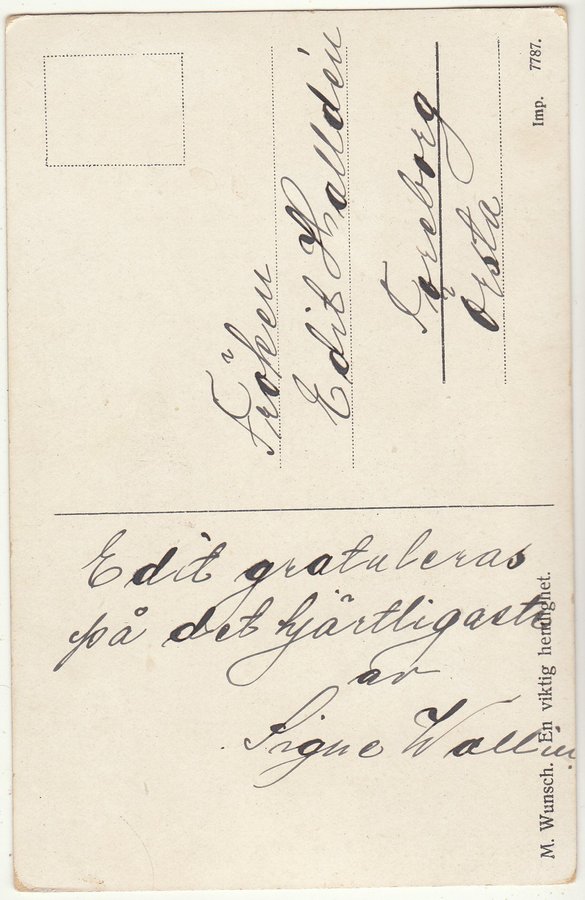 Fröken
Edit Halldén
Toreborg
Örsta
Edit gratuleras
på det hjärtligaste
av
Signe Wallin
M. Wunsch. En viktig hemlighet.
Imp. 7787.